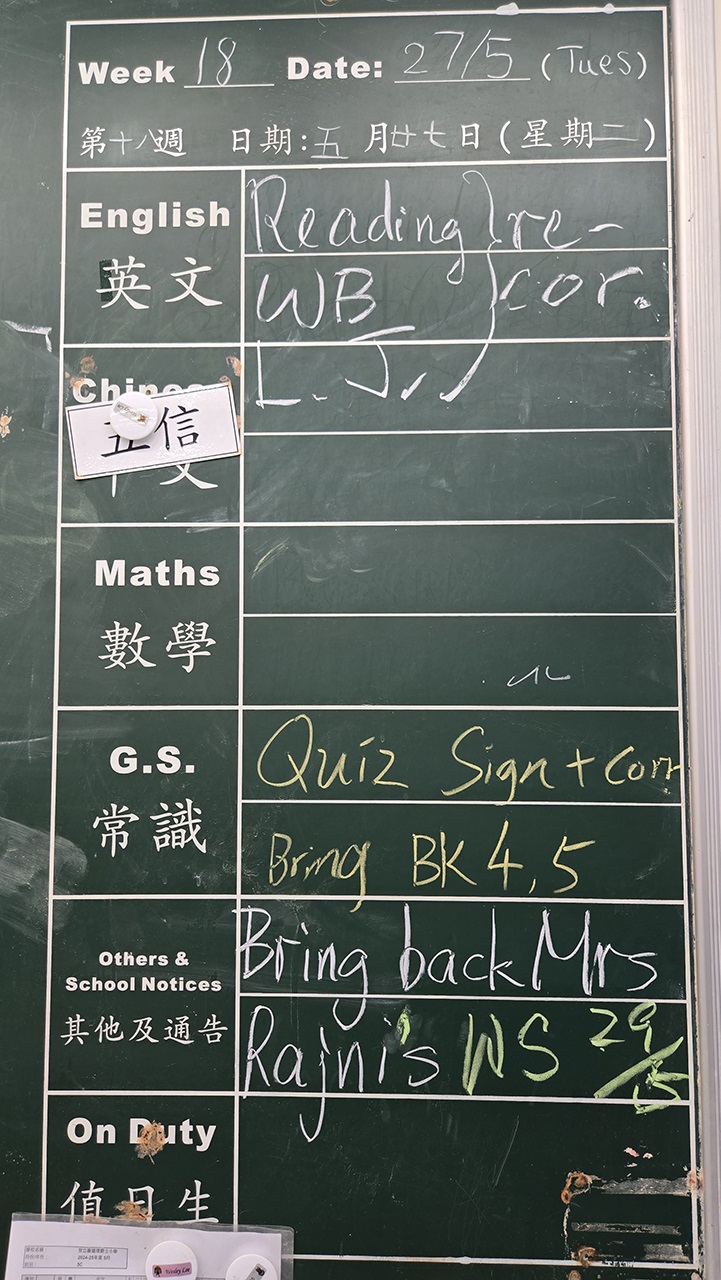 Week 18 Date: 27/5 (Tues)
第十八週 日期:五月廿七日(星期二)
English
英文
Reading } re-
WB } cor.
L.J. }
五信
Maths
數學
G.S.
常識
Quiz Sign + Corr
Bring BK 4, 5
Others &
School Notices
其他及通告
Bring back Mrs
Rajni's WS 29/5
On Duty
值日生
Wesley Lee